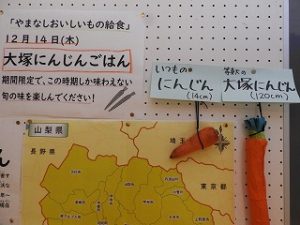 「やまなしおいしいもの給食」
12月14日(木)
大塚にんじんごはん
期間限定で、この時期しか味わえない
旬の味を楽しんでください！
いつもの
にんじん
(14cm)
大塚にんじん
(120cm)
山梨県
埼玉
長野県
東京都